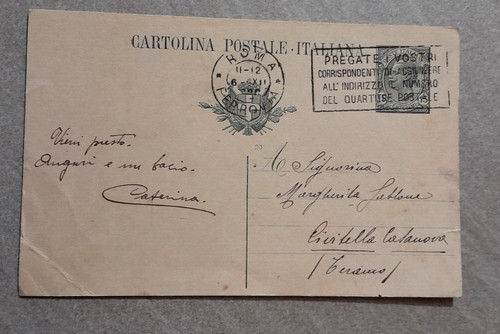 CARTOLINA POSTALE ITALIANA
ROMA
11-12
6 XII
FERROVIA
PREGATE I VOSTRI
CORRISPONDENTI DI AGGIUNGERE
ALL'INDIRIZZO IL NUMERO
DEL QUARTIERE POSTALE
Vieni presto.
Auguri e un bacio.
Caterina.
A Signorina
Margherita
Civitella Casanova
(Teramo)